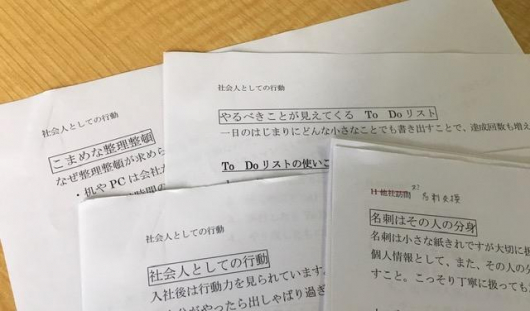 社会人としての行動
こまめな整理整頓
なぜ整理整頓が求めら
・机や PC は会社
社会人としての行動
やるべきことが見えてくる To Do リスト
一日のはじまりにどんな小さなことでも書き出すことで、達成回数も増え
To Do リストの使い
社会人としての行動
社会人としての行動
入社後は行動力を見られています。
がやったら出しゃばり過ぎ
他社訪問
名刺交換
名刺はその人の分身
名刺は小さな紙きれですが大切に
個人情報として、また、その人の
すこと。こっそり丁寧に扱っても